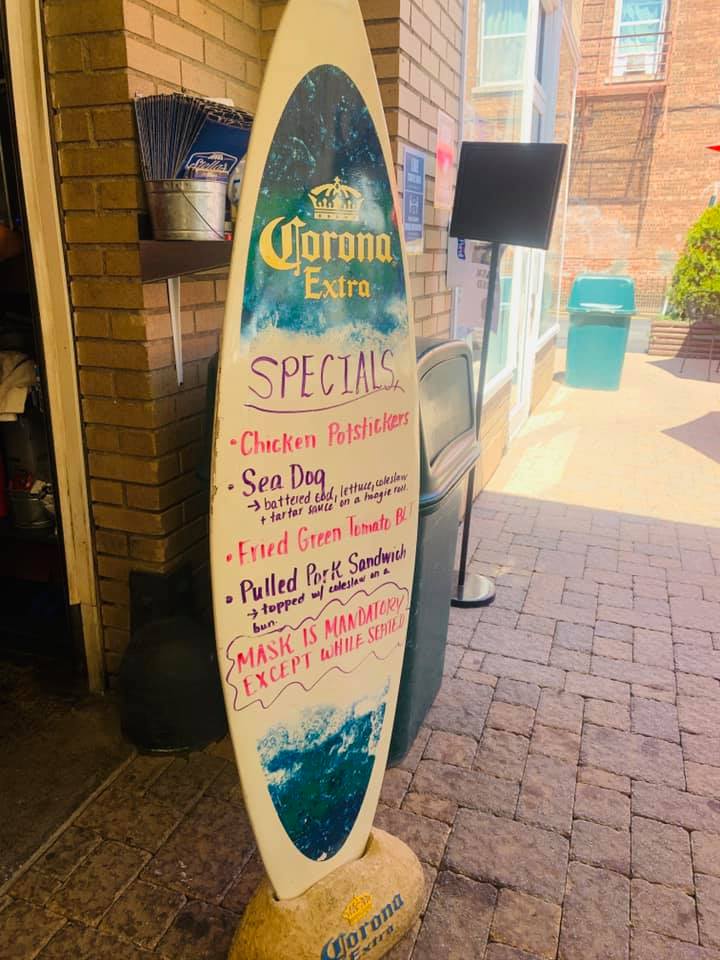 Corona
Extra
SPECIALS
• Chicken Potstickers
• Sea Dog
→ battered cod, lettuce, coleslaw
+ tartar sauce on a hoagie roll
• Fried Green Tomato BLT
• Pulled Pork Sandwich
→ topped w/ coleslaw on a
bun.
MASK IS MANDATORY
EXCEPT WHILE SEATED
Corona
Extra